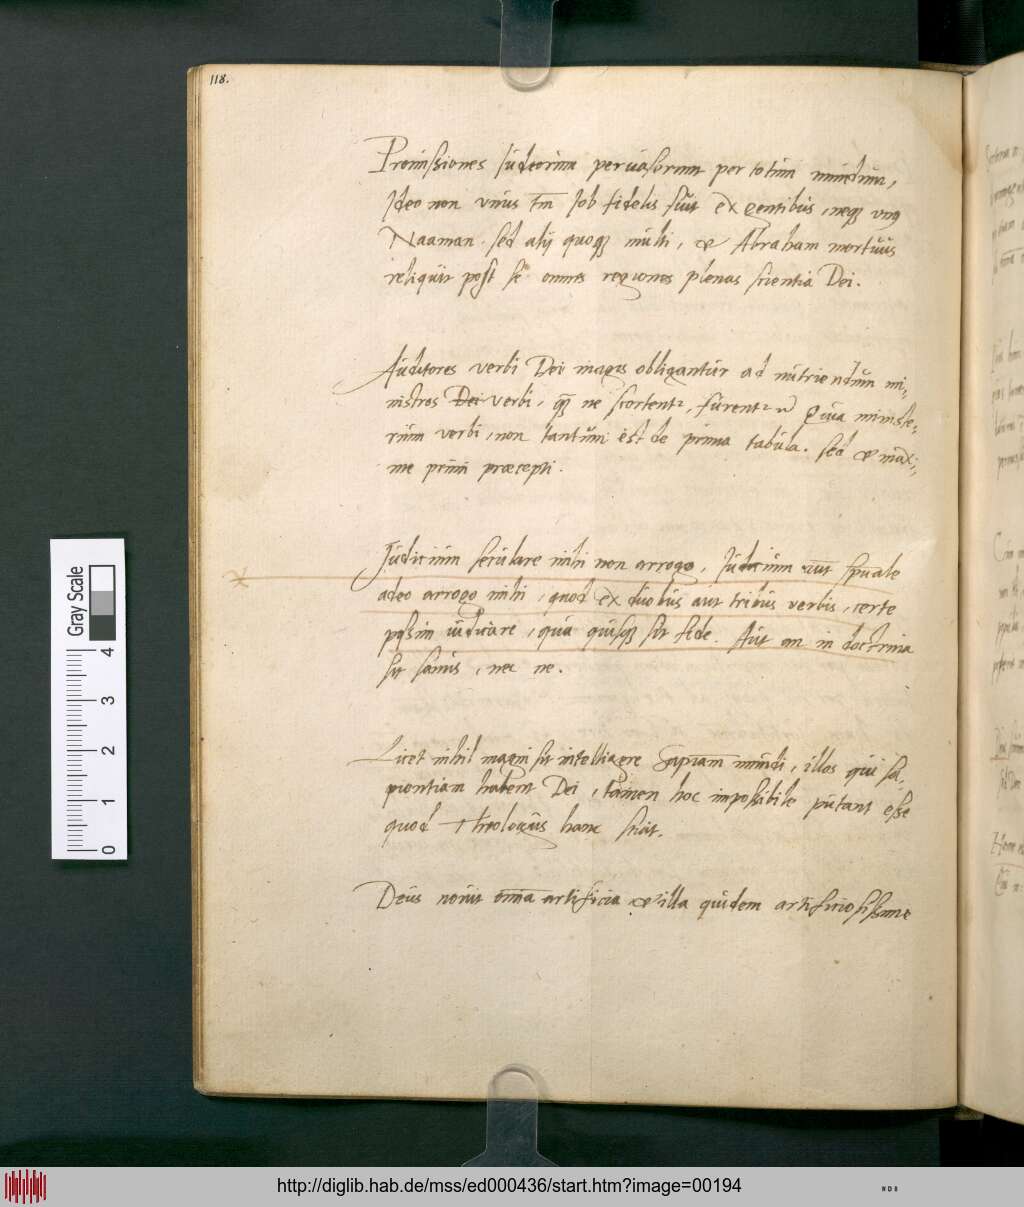 118.
Promissiones Iudeorum pervaserunt per totum mundum,
Ideo non unus tm̄ Iob fidelis fuit ex gentibus, neqȝ unq
Naaman. sed alij quoqȝ multi, et Abraham mortuus
reliquit post se omnes regiones plenas scientia Dei.
Auditores verbi Dei magis obligantur ad nutriendum mi,,
nistros Dei verbi, qȝ ne scortent², furent² Quia ministe,,
rium verbi, non tantum est de prima tabula. sed et maxi,,
me primi præcepti.
Iudicium seculare mihi non arrogo, Iudicium aut spūale
adeo arrogo mihi, quod ex duobus aut tribus verbis, certe
possim iudicare, qua quisqȝ sit fide. Aut an in doctrina
sit sanus, nec ne.
Licet nihil magni sit intelligere Sapiam mundi, illos qui sa,
pientiam habent Dei, tamen hoc impossibile putant esse
quod Theologus hanc sciat.
Deus novit omīa artificia et illa quidem artificiosissime
Gray Scale
4
3
2
1
0
http://diglib.hab.de/mss/ed000436/start.htm?image=00194